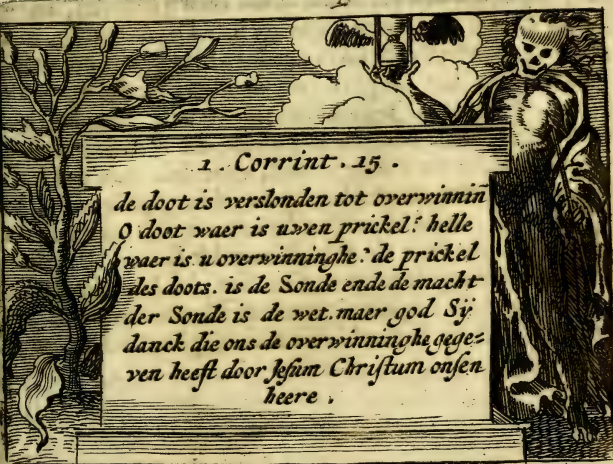 1. Corrint. 15.
de doot is verslonden tot overwinniñ
O doot waer is uwen prickel? helle
waer is u overwinninghe? de prickel
des doots. is de Sonde ende de macht
der Sonde is de wet. maer god Sÿ
danck die ons de overwinninghe gege=
ven heeft door Jesum Christum onsen
heere.